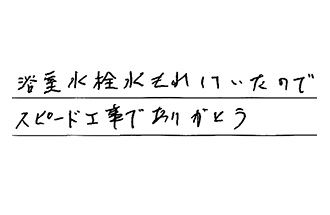 浴室水栓水もれけていたので
スピード工事でありがとう